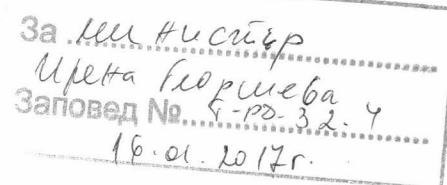 За министър
Ирена Георгиева
Заповед № Т-РД-32.4
16.01.2017г.